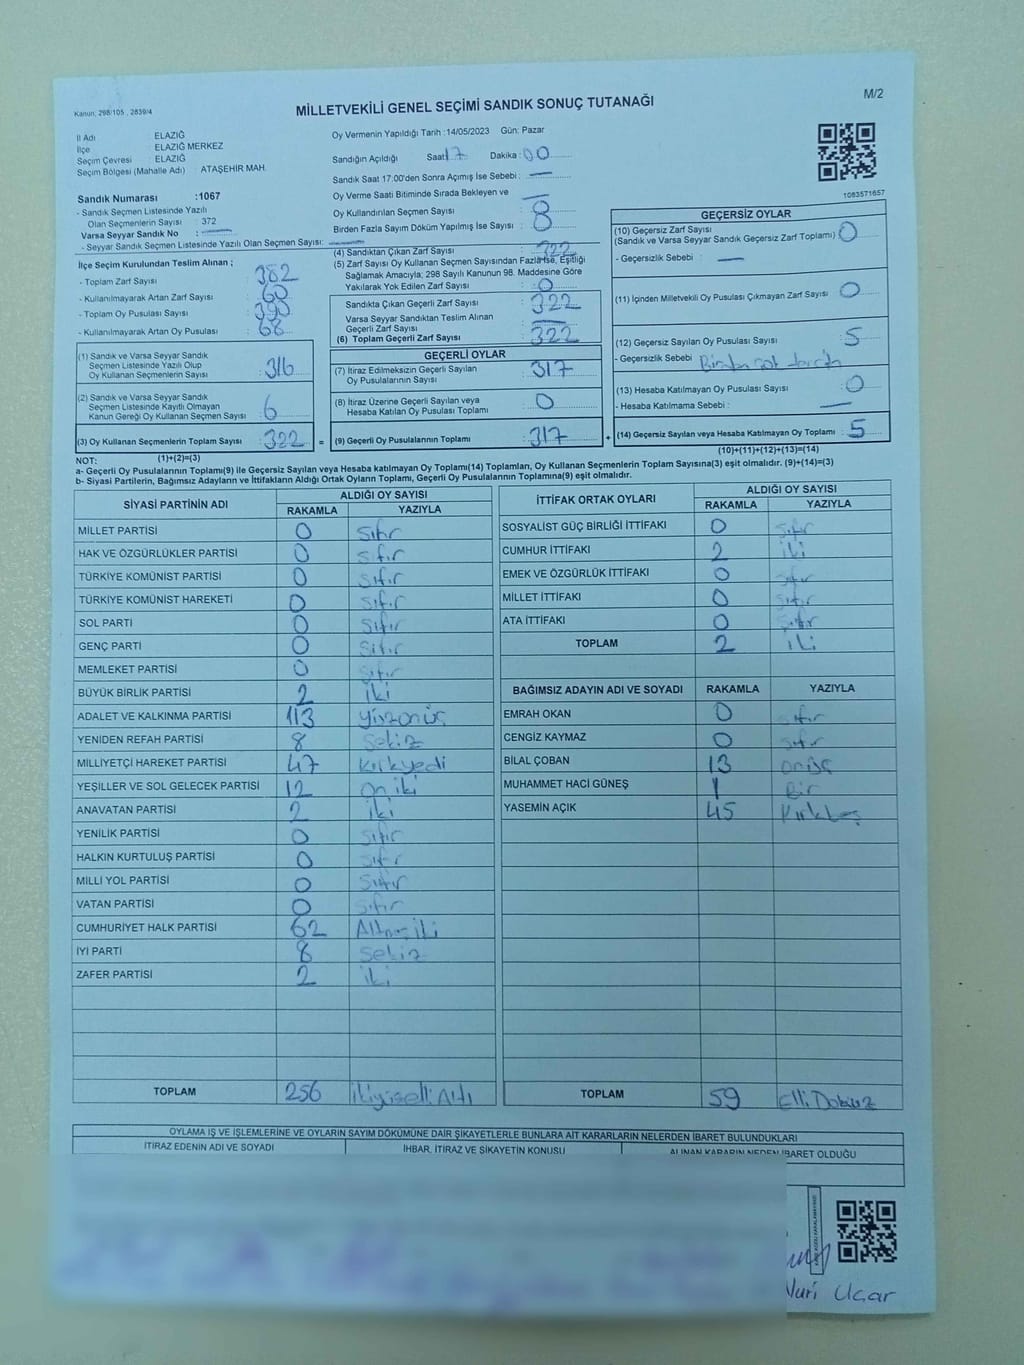 M/2
Kanun: 298/105 , 2839/4
MİLLETVEKİLİ GENEL SEÇİMİ SANDIK SONUÇ TUTANAĞI
İl Adı ELAZIĞ
İlçe ELAZIĞ MERKEZ
Seçim Çevresi : ELAZIĞ
Seçim Bölgesi (Mahalle Adı) ATAŞEHİR MAH.
Sandık Numarası :1067
- Sandık Seçmen Listesinde Yazılı
Olan Seçmenlerin Sayısı : 372
Varsa Seyyar Sandık No :
- Seyyar Sandık Seçmen Listesinde Yazılı Olan Seçmen Sayısı:
Oy Vermenin Yapıldığı Tarih :14/05/2023 Gün: Pazar
Sandığın Açıldığı Saat 17 Dakika: 00
Sandık Saat 17:00'den Sonra Açımış İse Sebebi :
Oy Verme Saati Bitiminde Sırada Bekleyen ve
Oy Kullandırılan Seçmen Sayısı : 8
Birden Fazla Sayım Döküm Yapılmış İse Sayısı :
1083571657
İlçe Seçim Kurulundan Teslim Alınan ;
- Toplam Zarf Sayısı : 382
- Kullanılmayarak Artan Zarf Sayısı : 60
- Toplam Oy Pusulası Sayısı : 390
- Kullanılmayarak Artan Oy Pusulası : 68
(1) Sandık ve Varsa Seyyar Sandık
Seçmen Listesinde Yazılı Olup
Oy Kullanan Seçmenlerin Sayısı : 316
(2) Sandık ve Varsa Seyyar Sandık
Seçmen Listesinde Kayıtlı Olmayan
Kanun Gereği Oy Kullanan Seçmen Sayısı : 6
(3) Oy Kullanan Seçmenlerin Toplam Sayısı : 322 =
(4) Sandıktan Çıkan Zarf Sayısı : 322
(5) Zarf Sayısı Oy Kullanan Seçmen Sayısından Fazla İse, Eşitliği
Sağlamak Amacıyla; 298 Sayılı Kanunun 98. Maddesine Göre
Yakılarak Yok Edilen Zarf Sayısı : 0
Sandıkta Çıkan Geçerli Zarf Sayısı : 322
Varsa Seyyar Sandıktan Teslim Alınan
Geçerli Zarf Sayısı :
(6) Toplam Geçerli Zarf Sayısı : 322
GEÇERLİ OYLAR
(7) İtiraz Edilmeksizin Geçerli Sayılan
Oy Pusulalarının Sayısı : 317
(8) İtiraz Üzerine Geçerli Sayılan veya
Hesaba Katılan Oy Pusulası Toplamı : 0
(9) Geçerli Oy Pusulalarının Toplamı : 317 +
GEÇERSİZ OYLAR
(10) Geçersiz Zarf Sayısı
(Sandık ve Varsa Seyyar Sandık Geçersiz Zarf Toplamı) : 0
- Geçersizlik Sebebi :
(11) İçinden Milletvekili Oy Pusulası Çıkmayan Zarf Sayısı : 0
(12) Geçersiz Sayılan Oy Pusulası Sayısı : 5
- Geçersizlik Sebebi :
(13) Hesaba Katılmayan Oy Pusulası Sayısı : 0
- Hesaba Katılmama Sebebi :
(14) Geçersiz Sayılan veya Hesaba Katılmayan Oy Toplamı : 5
NOT: (1)+(2)=(3) (10)+(11)+(12)+(13)=(14)
a- Geçerli Oy Pusulalarının Toplamı(9) ile Geçersiz Sayılan veya Hesaba katılmayan Oy Toplamı(14) Toplamları, Oy Kullanan Seçmenlerin Toplam Sayısına(3) eşit olmalıdır. (9)+(14)=(3)
b- Siyasi Partilerin, Bağımsız Adayların ve İttifakların Aldığı Ortak Oyların Toplamı, Geçerli Oy Pusulalarının Toplamına(9) eşit olmalıdır.
SİYASİ PARTİNİN ADI ALDIĞI OY SAYISI
RAKAMLA YAZIYLA
MİLLET PARTİSİ 0 Sıfır
HAK VE ÖZGÜRLÜKLER PARTİSİ 0 sıfır
TÜRKİYE KOMÜNİST PARTİSİ 0 sıfır
TÜRKİYE KOMÜNİST HAREKETİ 0 sıfır
SOL PARTİ 0 sıfır
GENÇ PARTİ 0 sıfır
MEMLEKET PARTİSİ 0 sıfır
BÜYÜK BİRLİK PARTİSİ 2 iki
ADALET VE KALKINMA PARTİSİ 113 yüzonüç
YENİDEN REFAH PARTİSİ 8 sekiz
MİLLİYETÇİ HAREKET PARTİSİ 47 kırkyedi
YEŞİLLER VE SOL GELECEK PARTİSİ 12 on iki
ANAVATAN PARTİSİ 2 iki
YENİLİK PARTİSİ 0 sıfır
HALKIN KURTULUŞ PARTİSİ 0 sıfır
MİLLİ YOL PARTİSİ 0 sıfır
VATAN PARTİSİ 0 sıfır
CUMHURİYET HALK PARTİSİ 62 Altmışiki
İYİ PARTİ 8 sekiz
ZAFER PARTİSİ 2 iki
TOPLAM 256 ikiyüzelli Altı
İTTİFAK ORTAK OYLARI ALDIĞI OY SAYISI
RAKAMLA YAZIYLA
SOSYALİST GÜÇ BİRLİĞİ İTTİFAKI 0 sıfır
CUMHUR İTTİFAKI 2 iki
EMEK VE ÖZGÜRLÜK İTTİFAKI 0 sıfır
MİLLET İTTİFAKI 0 sıfır
ATA İTTİFAKI 0 sıfır
TOPLAM 2 iki
BAĞIMSIZ ADAYIN ADI VE SOYADI RAKAMLA YAZIYLA
EMRAH OKAN 0 sıfır
CENGİZ KAYMAZ 0 sıfır
BİLAL ÇOBAN 13 onüç
MUHAMMET HACİ GÜNEŞ 1 Bir
YASEMİN AÇIK 45 Kırkbeş
TOPLAM 59 Elli Dokuz
OYLAMA İŞ VE İŞLEMLERİNE VE OYLARIN SAYIM DÖKÜMÜNE DAİR ŞİKAYETLERLE BUNLARA AİT KARARLARIN NELERDEN İBARET BULUNDUKLARI
İTİRAZ EDENİN ADI VE SOYADI İHBAR, İTİRAZ VE ŞİKAYETİN KONUSU ALINAN KARARIN NEDEN İBARET OLDUĞU
Nuri Uçar